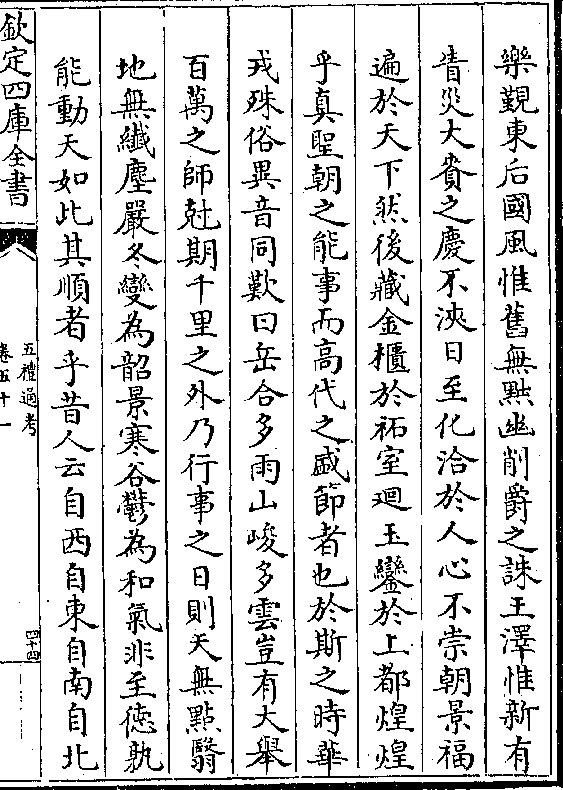 樂覲東后國風惟舊無黜幽削爵之誅王澤惟新有
眚災大賚之慶不浹日至化洽於人心不崇朝景福
遍於天下然後藏金櫃於祏室迴玉鑾於上都煌煌
乎真聖朝之能事而高代之盛節者也於斯之時華
戎殊俗異音同歎曰岳合多雨山峻多雲豈有大舉
百萬之師尅期千里之外乃行事之日則天無點翳
地無纖塵嚴冬變為韶景寒谷鬱為和氣非至德孰
能動天如此其順者乎昔人云自西自東自南自北
欽定四庫全書
五禮通考
卷五十一
四十四